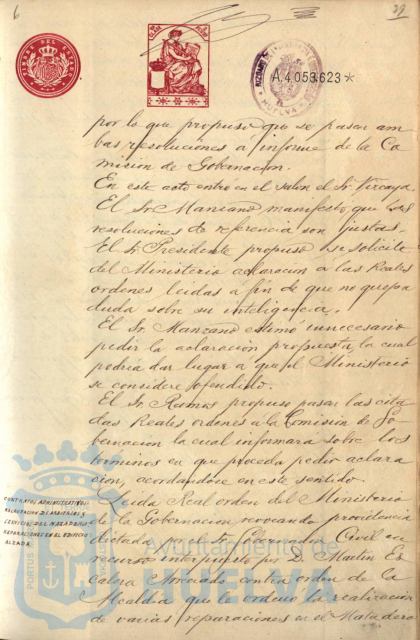 6
29
TIMBRE DEL ESTADO
A.4.053.623*
HUELVA
por lo que propuso que se pasar am
bas resoluciones a informe de la Co
mision de Gobernacion.
En este acto entro en el salon el Sr. Vizcaya
El Sr. Manzano manifestó que las
resoluciones de referencia son justas.
El Sr. Presidente propuso se solicite
del Ministerio aclaracion a las Reales
ordenes leidas a fin de que no quepa
duda sobre su inteligencia.
El Sr. Manzano estimó innecesario
pedir la aclaración propuesta, la cual
podria dar lugar a que el Ministerio
se considere ofendido.
El Sr. Ramos propuso pasar las cita
das Reales ordenes a la Comision de Go-
bernacion la cual informara sobre los
terminos en que proceda pedir aclara
cion, acordandose en este sentido.
CONTRATOS ADMINISTRATIVOS
SERVICIO DEL MATADERO
REPARACIONES EN EL EDIFICIO
ALZADA.
Leida Real orden del Ministerio
de la Gobernacion revocando providencia
dictada por el Sr. Gobernador Civil en
recurso interpuesto por D. Martin Es
calera Abogado contra orden de la
Alcaldia que le ordeno la realización
de varias reparaciones en el Matadero
Ayuntamiento de
HUELVA
PORTUS